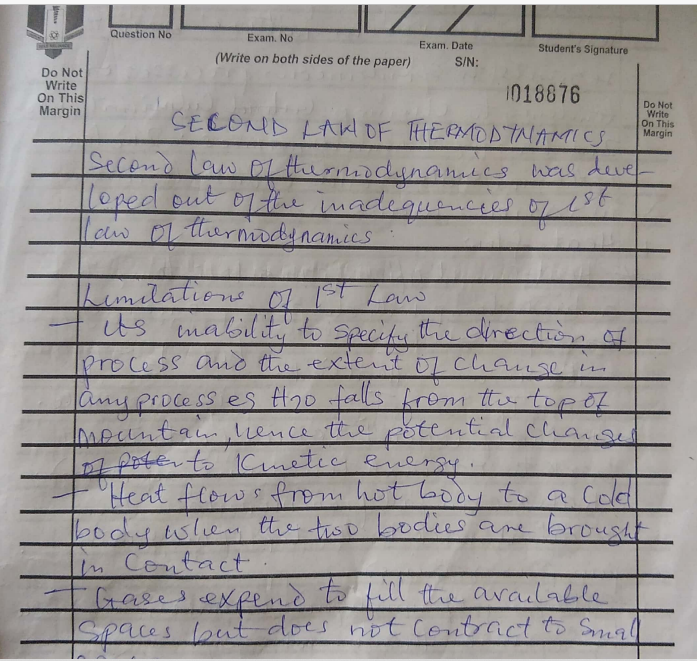 Question No
Exam. No
Exam. Date
Student's Signature
(Write on both sides of the paper)
S/N:
1018876
Do Not
Write
On This
Margin
Do Not
Write
On This
Margin
SECOND LAW OF THERMODYNAMICS
Second Law of thermodynamics was deve-
loped out of the inadequencies of 1st
law of thermodynamics.
Limitations of 1st Law
- Its inability to specify the direction of
process and the extent of change in
any process es H20 falls from the top of
mountain, hence the potential changes
to Kinetic energy.
- Heat flows from hot body to a cold
body when the two bodies are brought
in Contact.
- Gases expend to fill the available
Spaces but does not contract to small